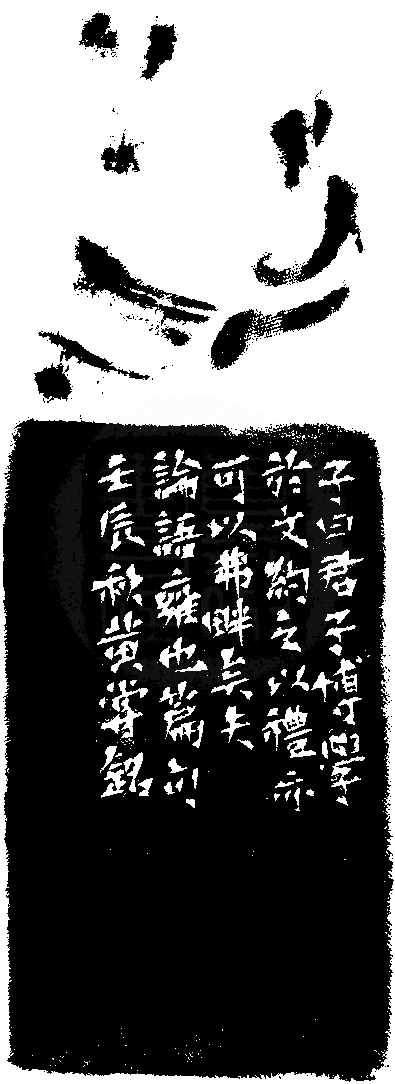 子曰君子博學
於文約之以禮亦
可以弗畔矣夫
論語雍也篇句
壬辰秋黃嘗銘